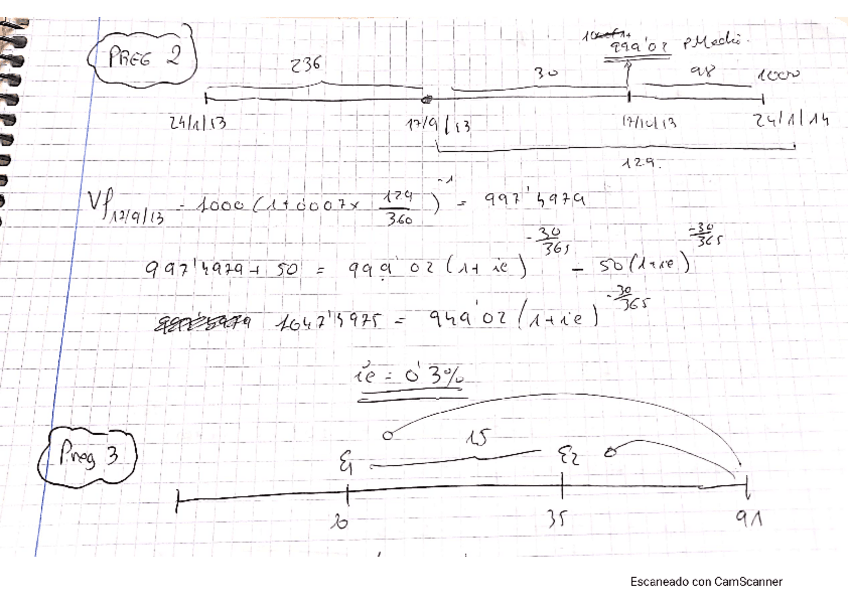 PREG 2
236
30
999'02 PMedio.
98
1000
24/1/13
17/9/13
17/10/13
24/1/14
129.
Vf 17/9/13 = 1000 (1+0007x 129/360)^-1 = 997'4979
997'4979 + 50 = 999'02 (1 + ie)^-30/365 - 50 (1+ie)^-30/365
1047'4975 = 949'02 (1+ie)^-30/365
ie = 0'3%
Preg 3
15
E1
E2
35
91
Escaneado con CamScanner